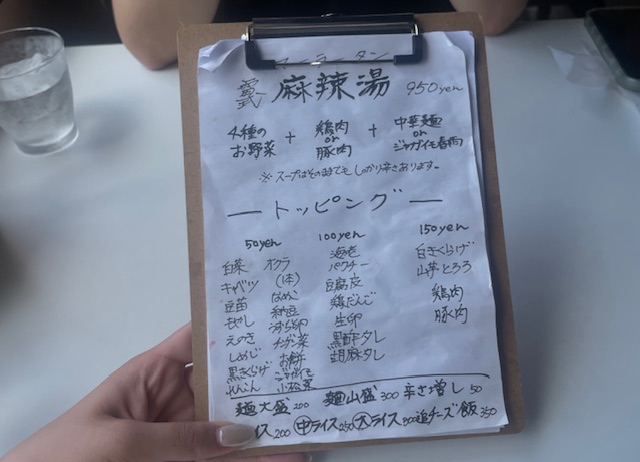 マーラータン
麻辣湯 950yen
4種のお野菜 + 鶏肉 or 豚肉 + 中華麺 or ジャガイモ春雨
※スープはそのままでもしっかり辛さあります。
トッピング
50yen 100yen 150yen
白菜 オクラ 海老 白きくらげ
キャベツ (体) パクチー 山芋とろろ
豆苗 なめこ 豆腐皮 鶏肉
もやし 納豆 鶏だんご 豚肉
えのき うずら卵 生卵
しめじ チンゲン菜 黒酢タレ
黒きくらげ お餅 胡麻タレ
れんこん 小松菜
麺大盛 200 麺山盛 300 辛さ増し 50
イス 200 中ライス 250 大ライス 300 追チーズ飯 350